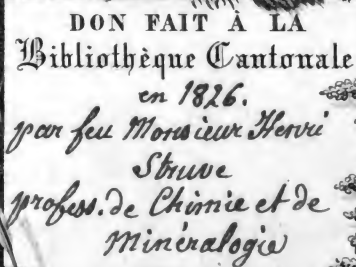 DON FAIT À LA
Bibliothèque Cantonale
en 1826.
par feu Monsieur Henri
Struve
profess. de Chimie et de
Minéralogie